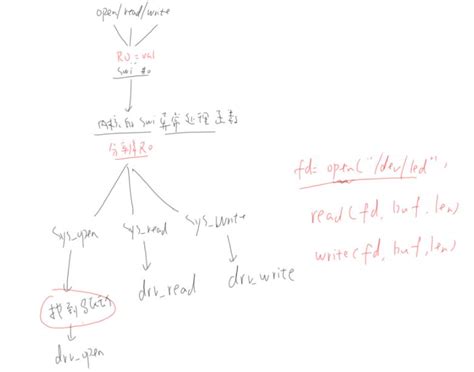 open/read/write
R0 = val
swi #0
内核的 swi 异常处理函数
分辨R0
sys_open
sys_read
sys_write
找到
drv_open
drv_read
drv_write
fd= open("/dev/led",
read(fd, buf, len)
write(fd, buf, len)